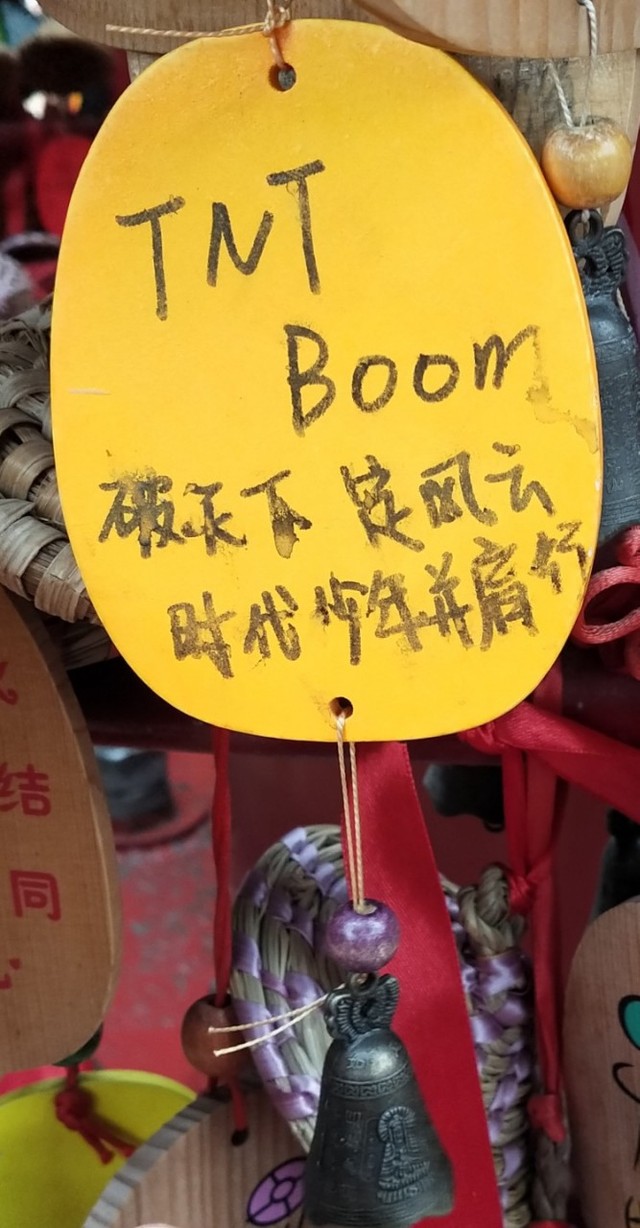 TNT
Boom
破天下 定风云
时代少年并肩行
结
同
心